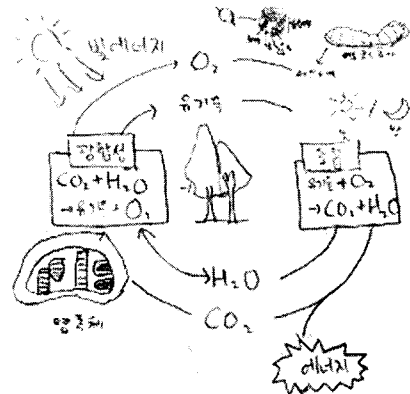 빛에너지
O₂
유기물
광합성
CO₂+H₂O
→유기물+O₂
호흡
유기물+O₂
→CO₂+H₂O
/밤
H₂O
CO₂
엽록체
에너지